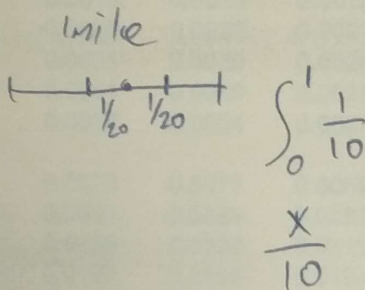 1 mile
1/20 1/20
∫₀¹ 1/10
x/10